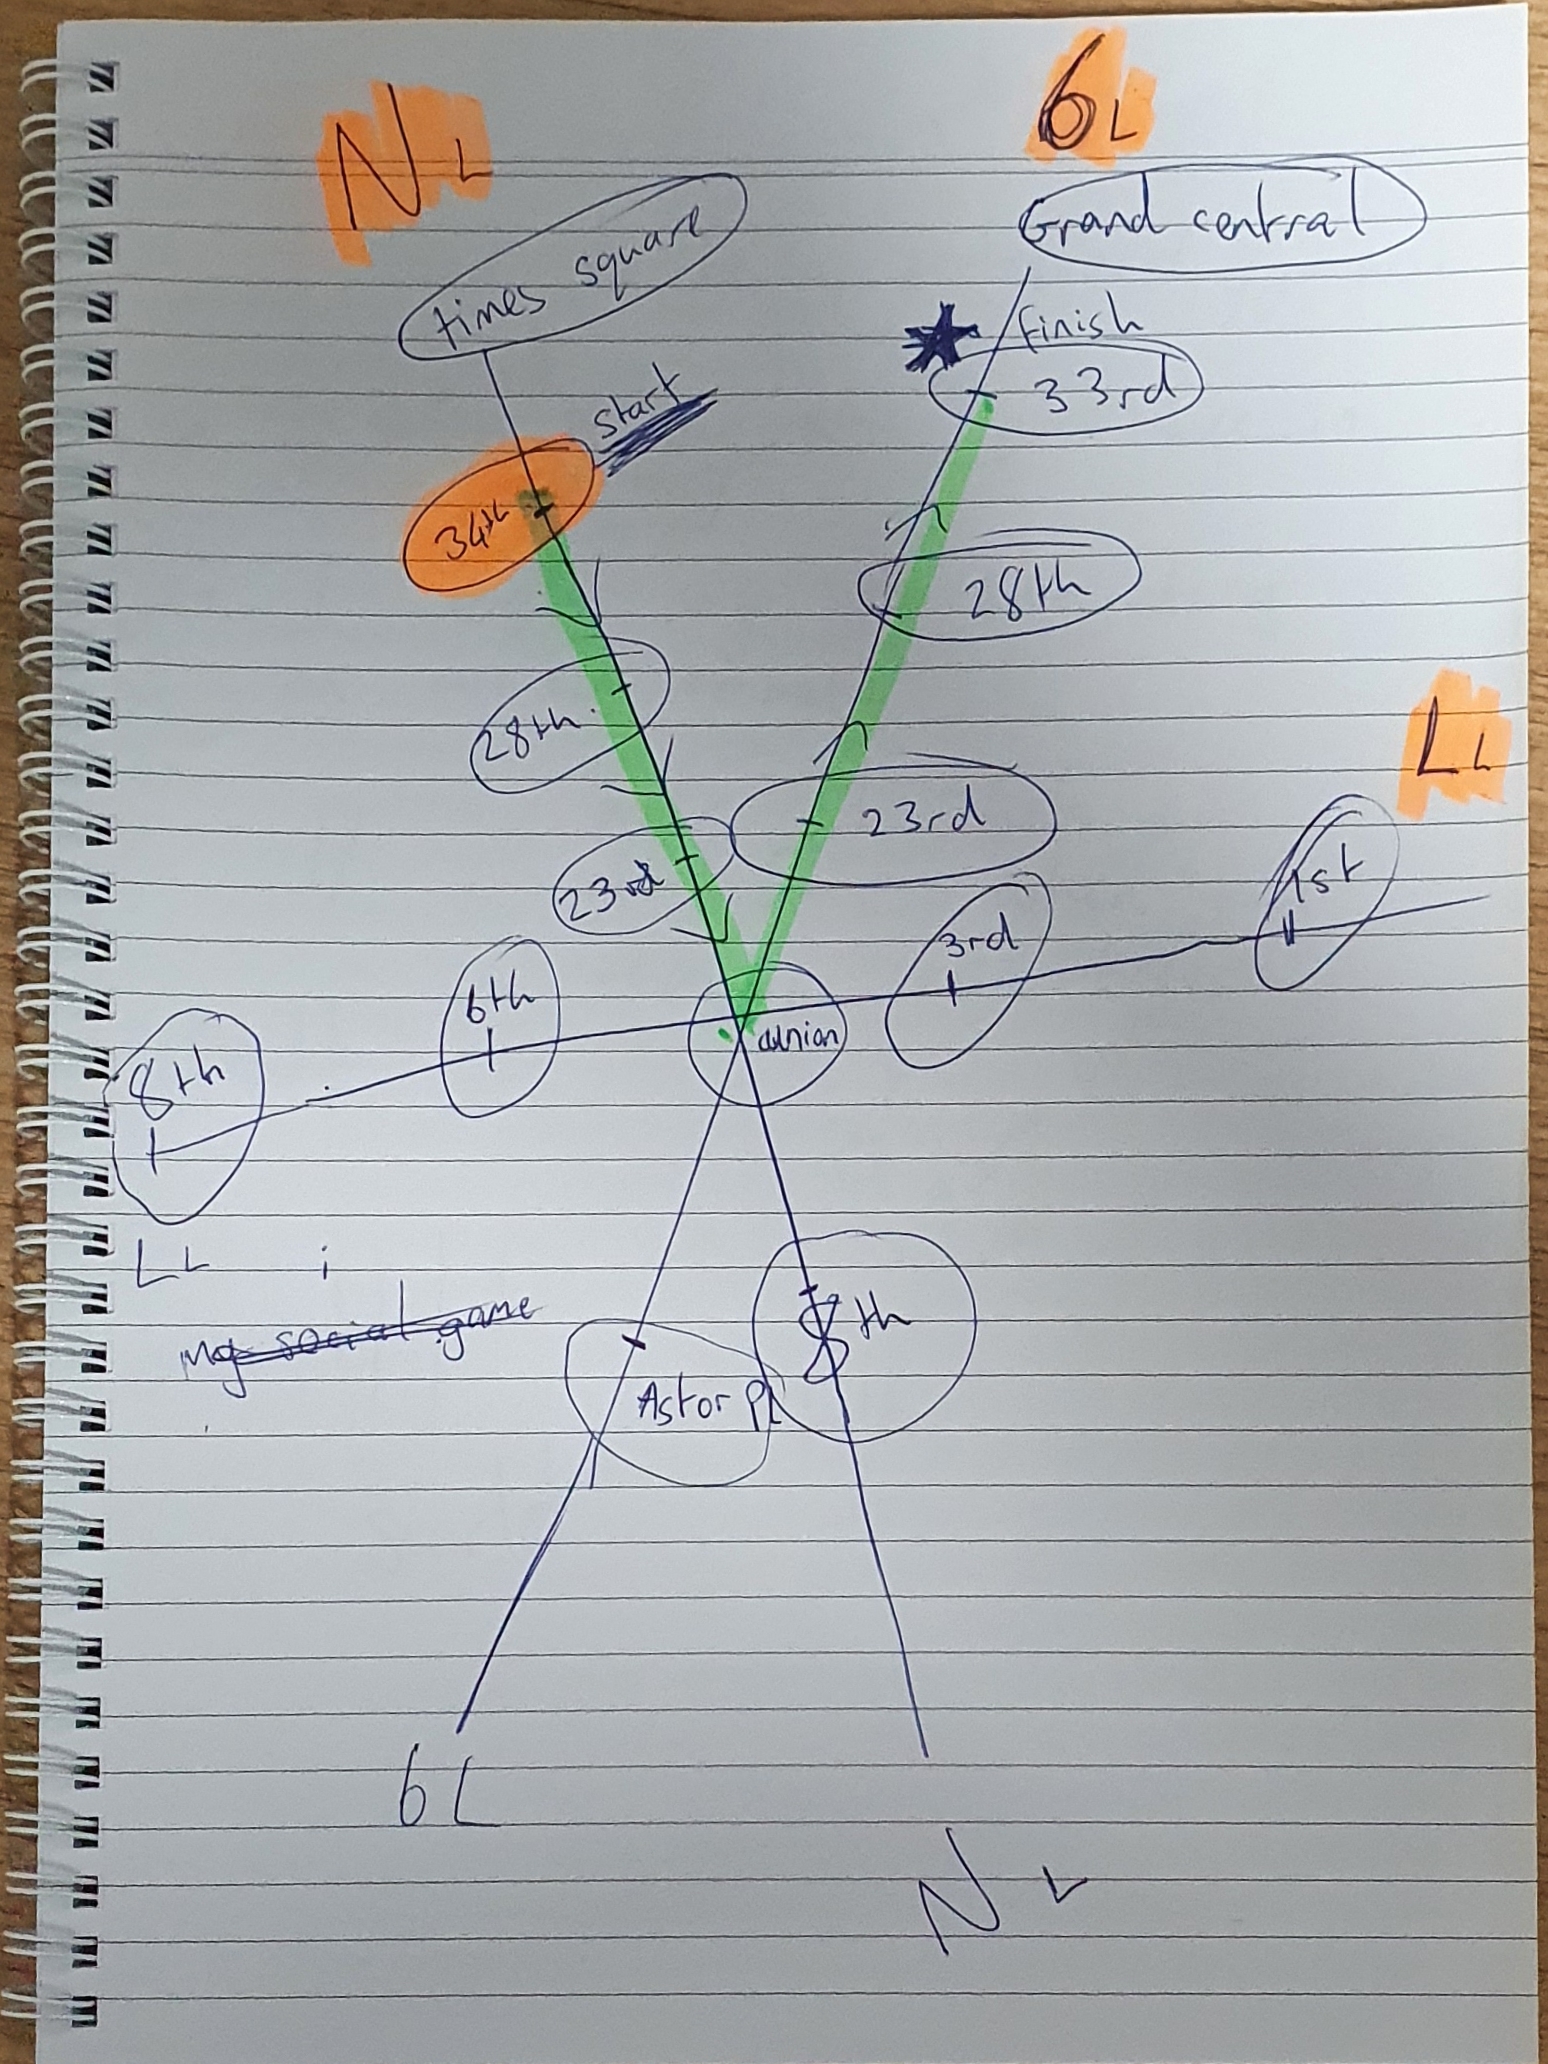 N L
6 L
times square
Grand central
start
finish
34th
33rd
28th
28th
L L
23rd
23rd
1st
3rd
6th
union
8th
L L
i
my social game
8th
Astor Pl
6 L
N L